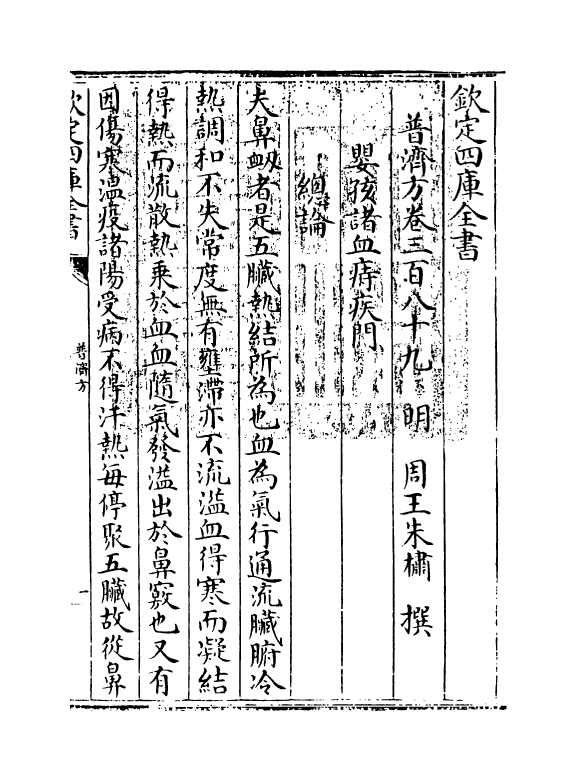 欽定四庫全書
普濟方卷三百八十九　明　周王朱橚　撰
嬰孩諸血痔疾門
總論
夫鼻衄者是五臟熱結所為也血為氣行通流臟腑冷
熱調和不失常度無有壅滯亦不流溢血得寒而凝結
得熱而流散熱乗於血血隨氣發溢出於鼻竅也又有
因傷寒溫疫諸陽受病不得汗熱毎停聚五臟故從鼻
欽定四庫全書
普濟方
一